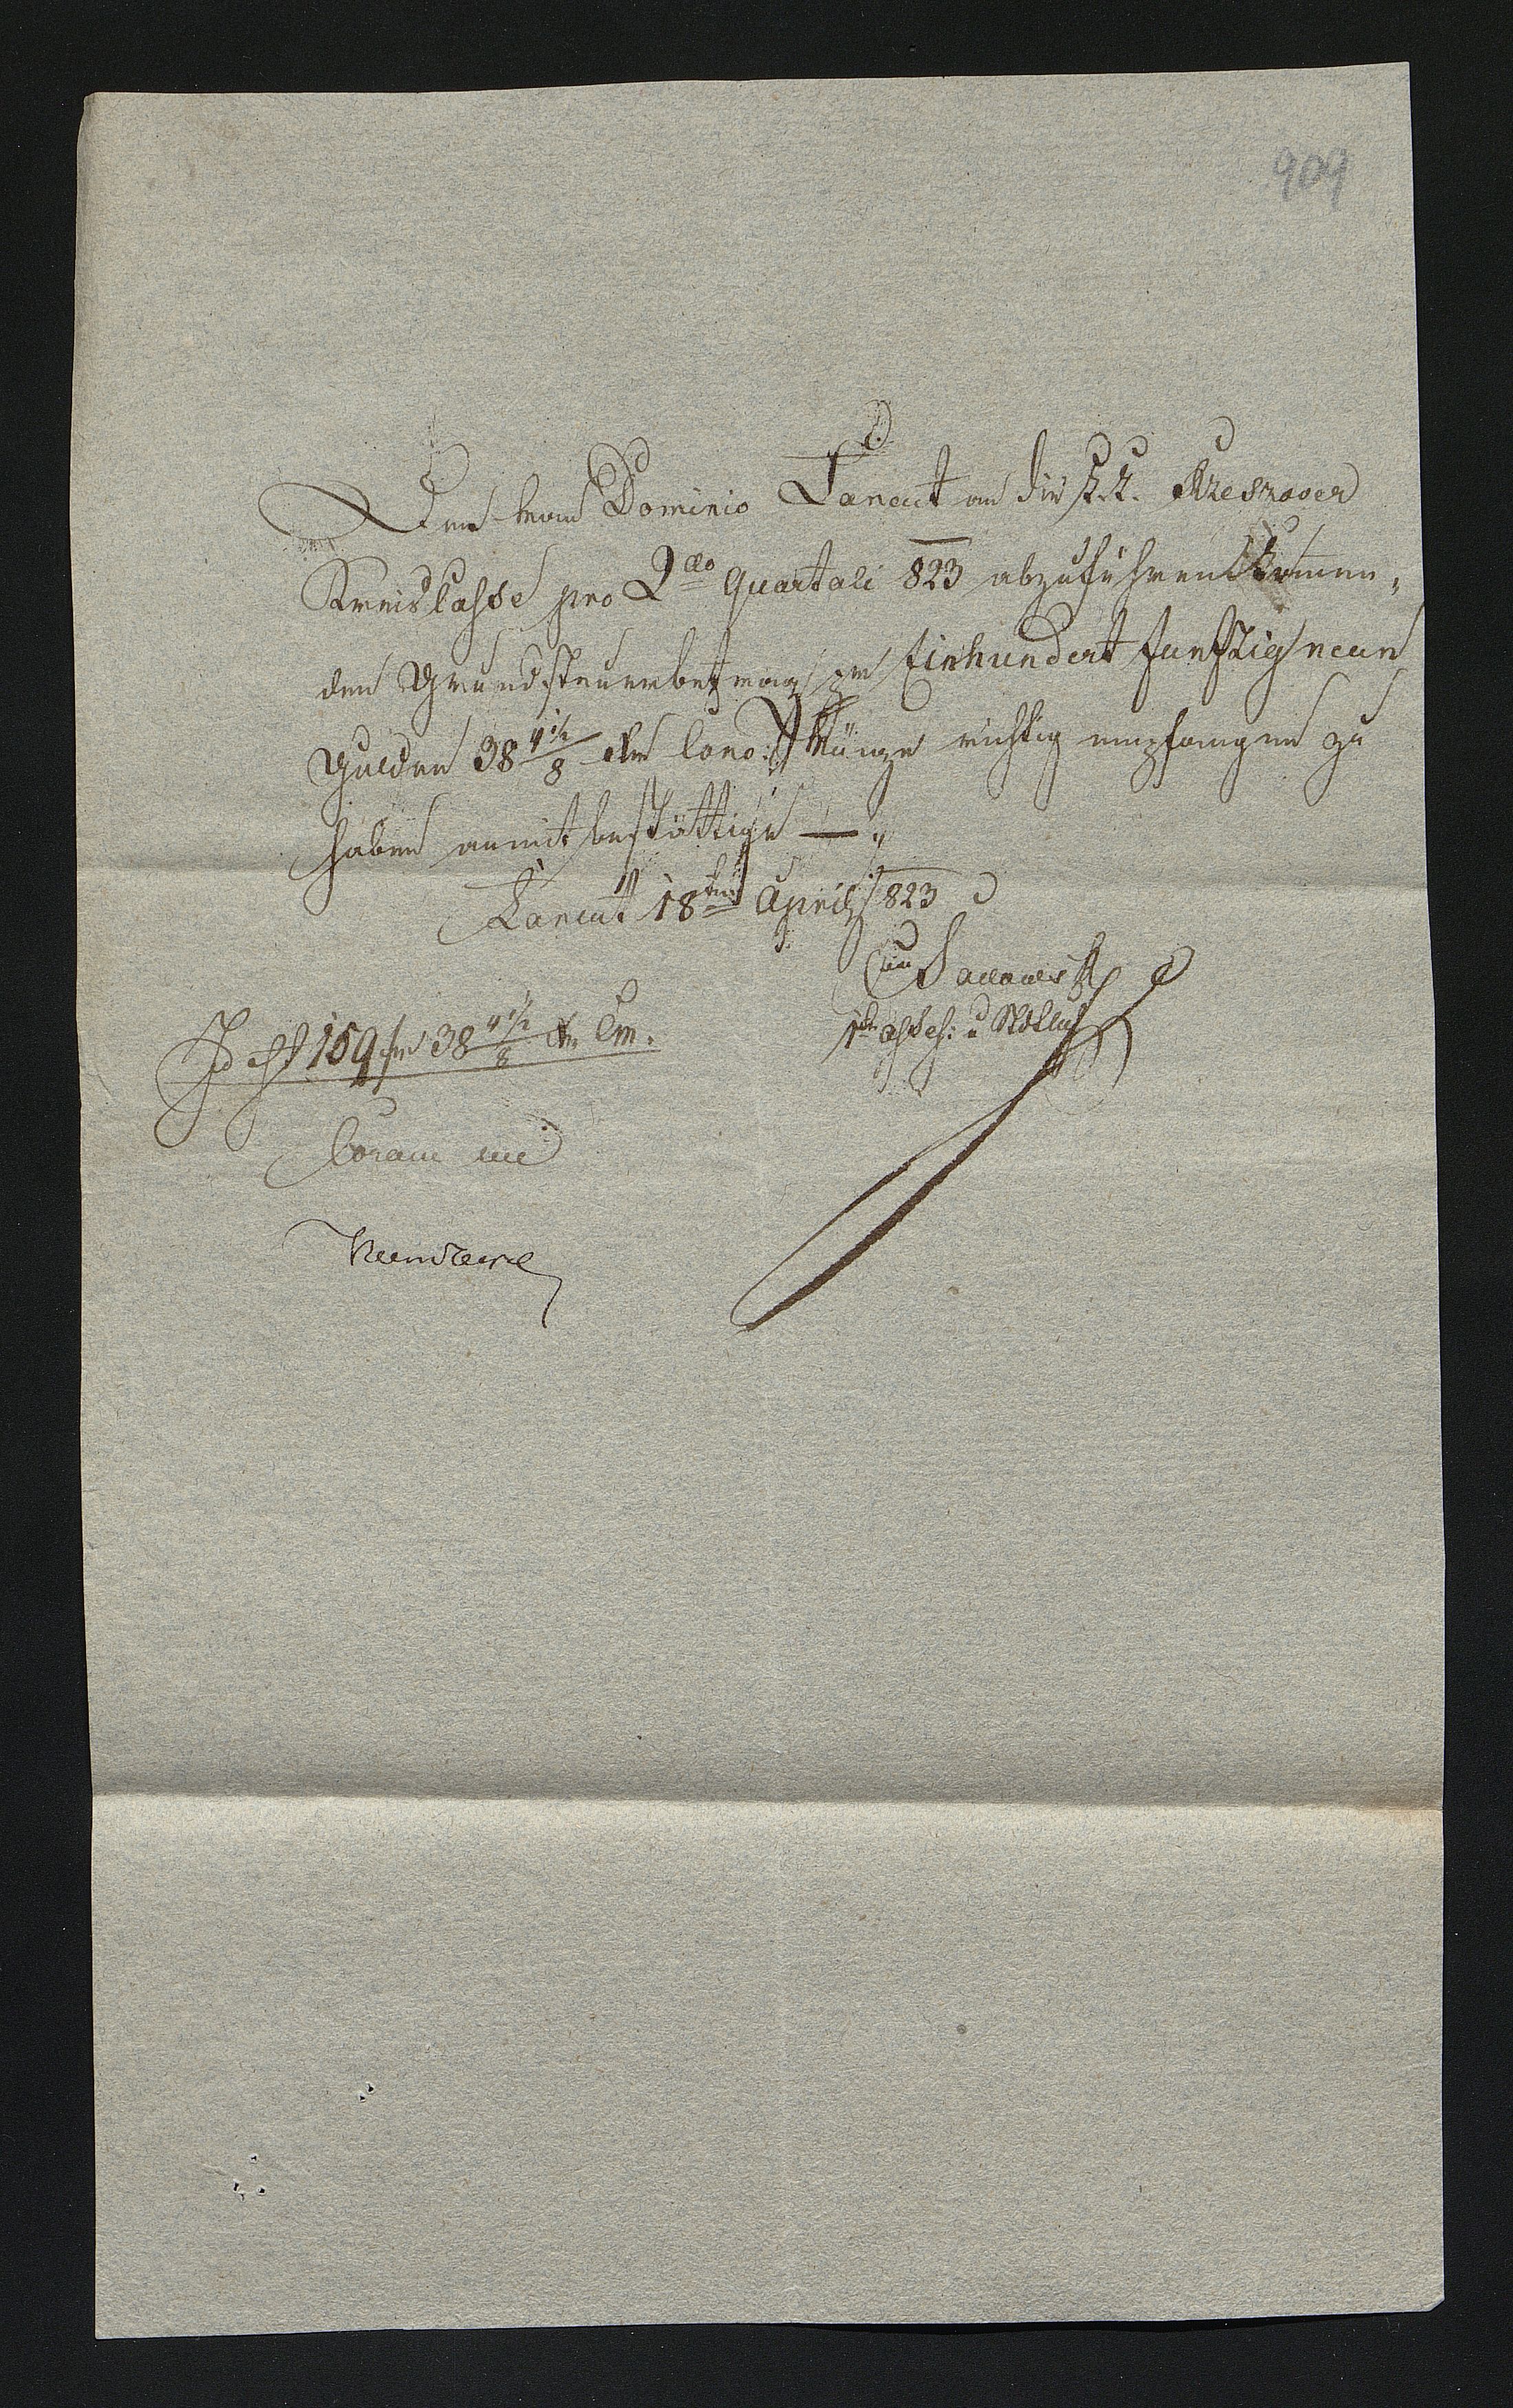 909
Den vom Dominio Lancut an die k. k. Rzeszower
Kreiskasse pro 2do Quartali 823 abzuführen kommen,
den Grundsteuerbetrag pr Einhundert funfzig neun
Gulden 38 4½/8 xr Conv: Münze richtig empfangen zu
haben anmit bestättige —
Lancut 18ten April 823
Id est 159 fr 38 4½/8 xr Cm.
Coram me